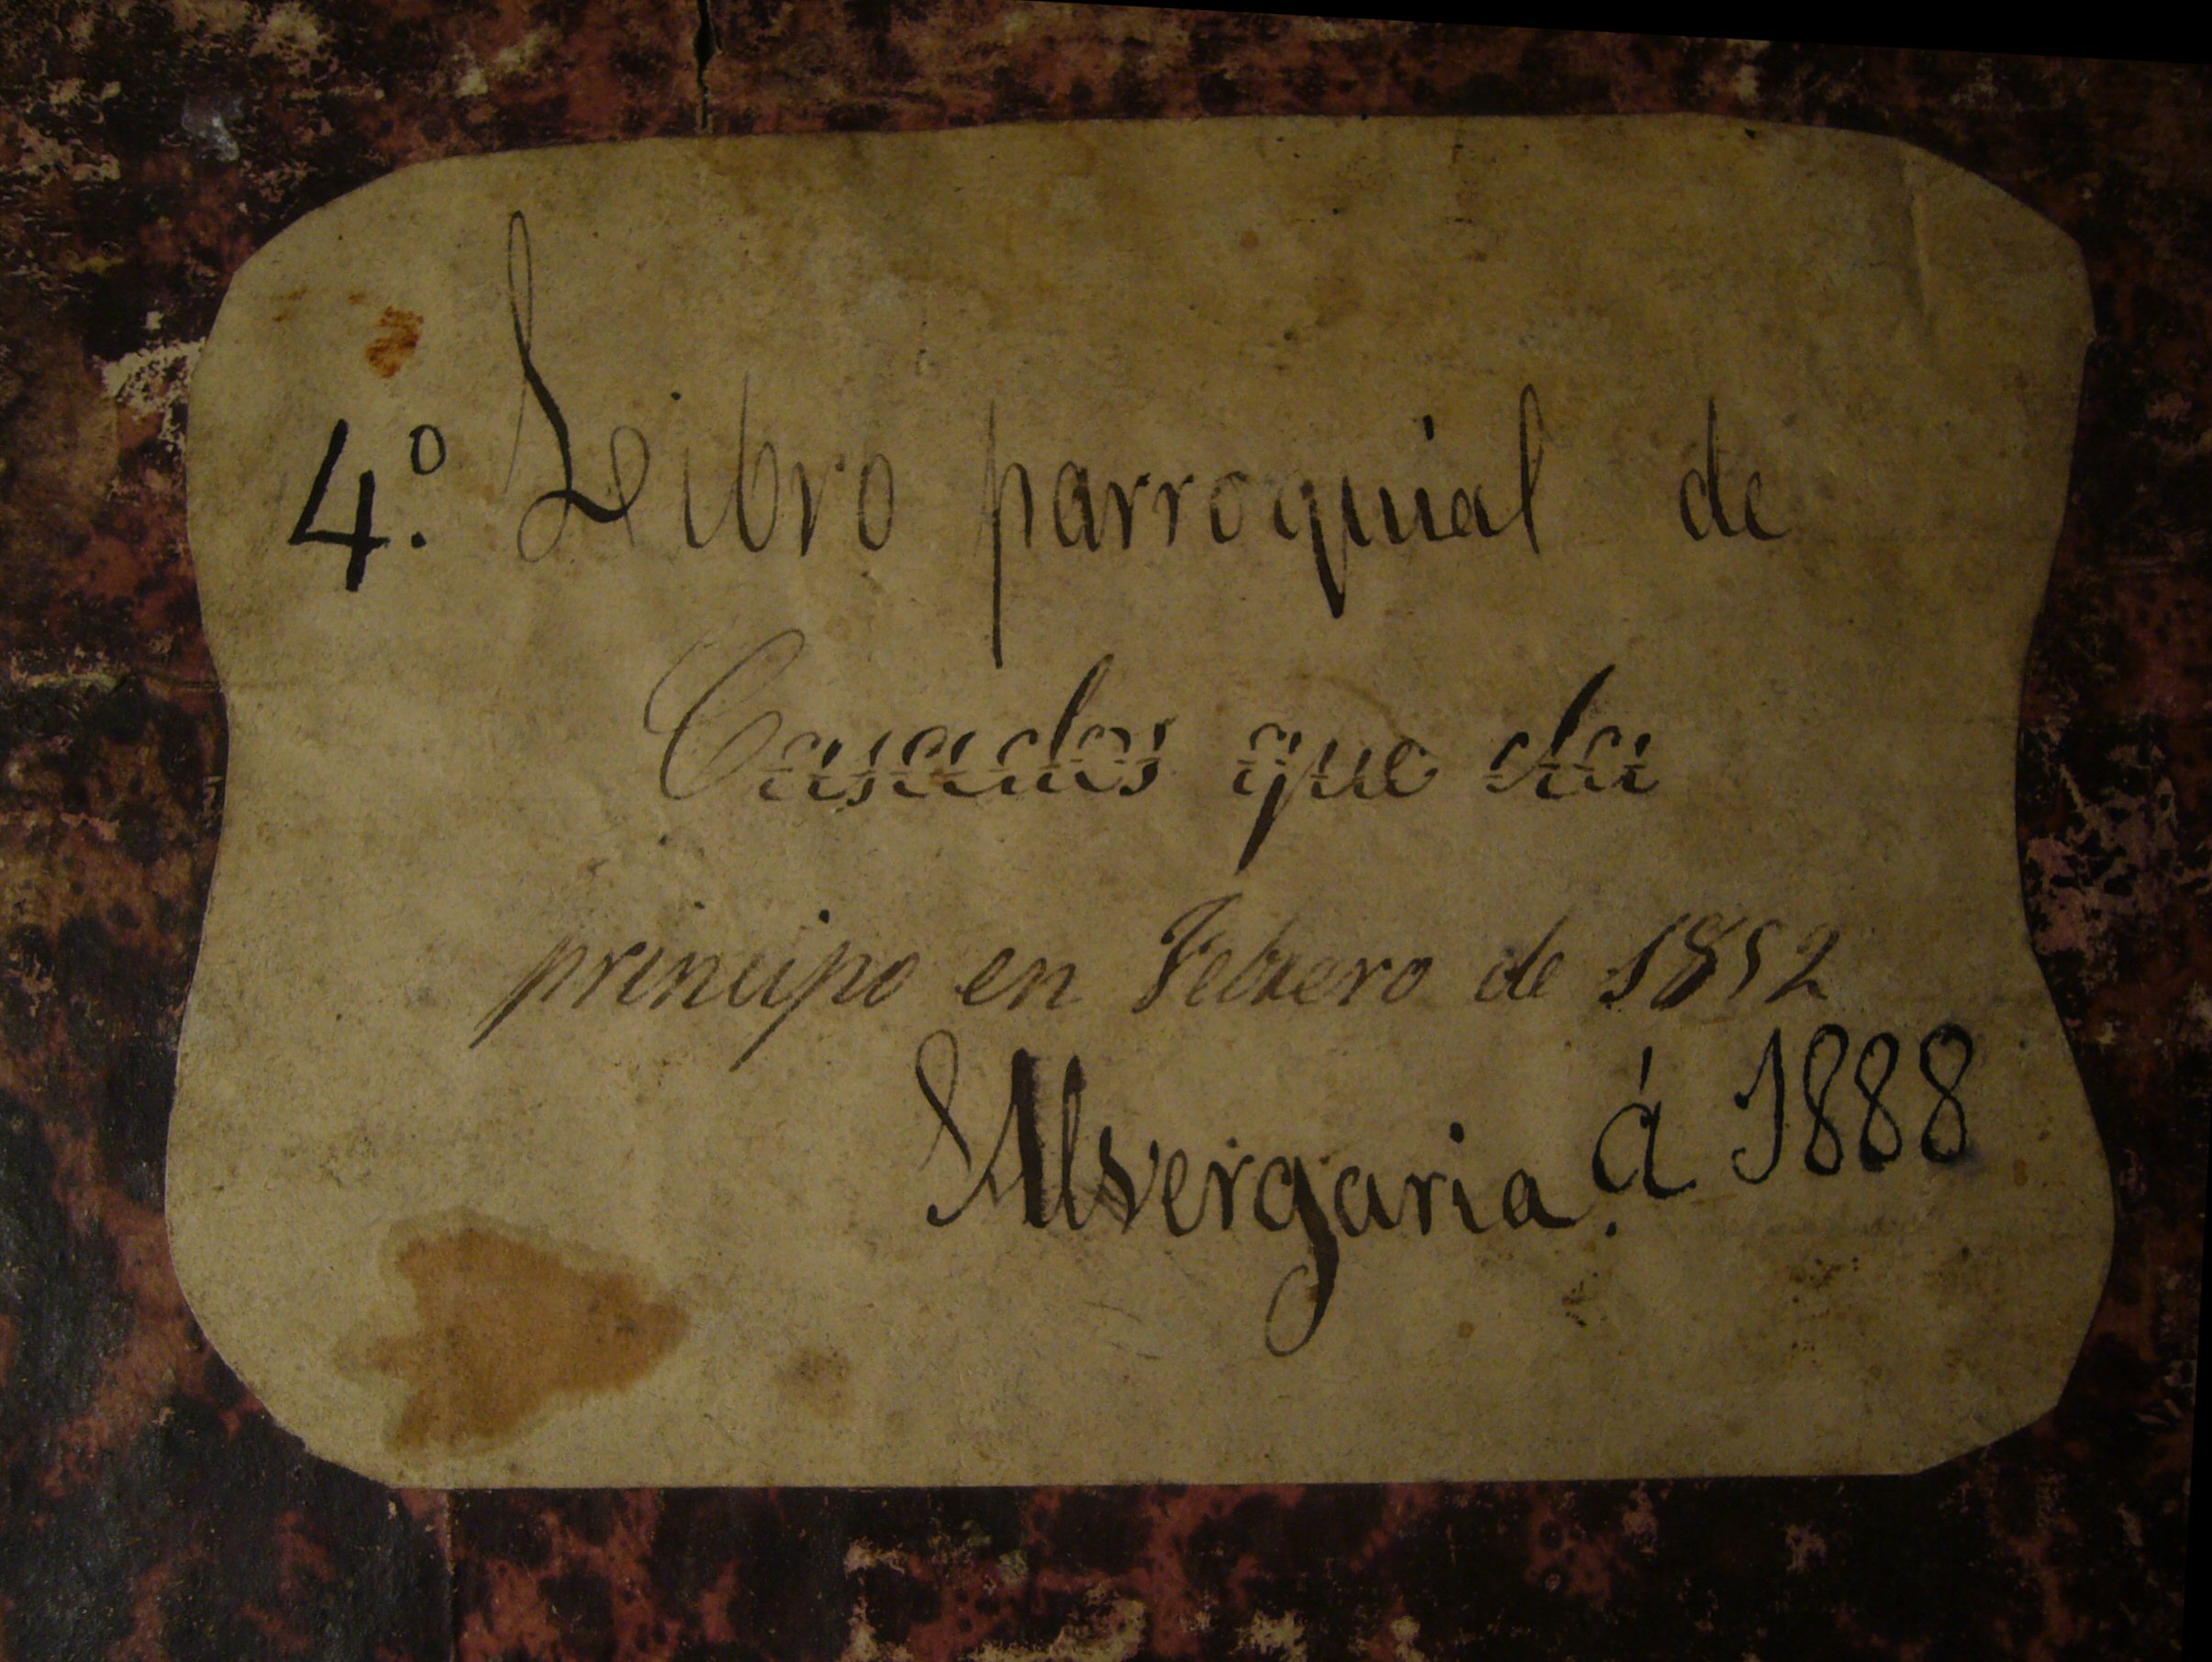 4.º Libro parroquial de
Casados que da
principo en Febrero de 1852
Alvergaria á 1888